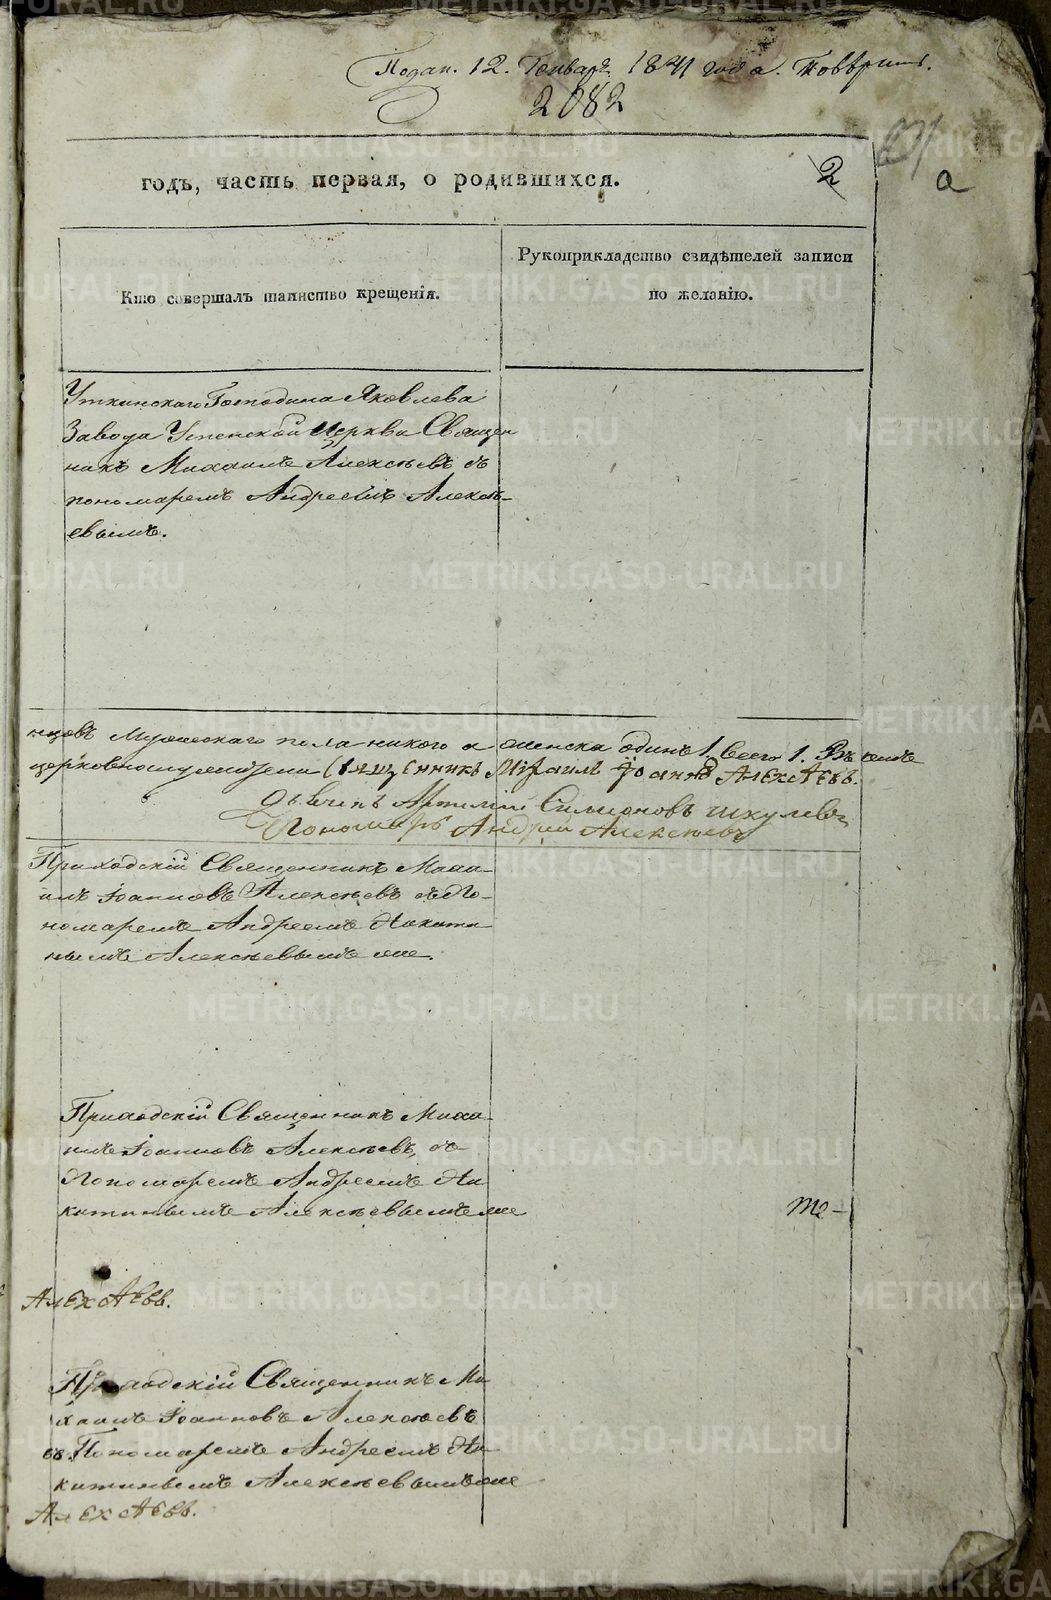 Подан. 12. Генваря 1841 года.
2082
2
а
годъ, часть первая, о родившихся.
Кто совершалъ таинство крещенія.
Рукоприкладство свидѣтелей записи
по желанію.
Уткинскаго Господина Яковлева
Завода Успенской Церкви Священ
никъ Михаилъ Алексѣевъ съ
пономаремъ Андреемъ Алексѣ-
евымъ.
мужескаго пола никого а женска одинъ 1. всего 1. Въ чемъ
Священникъ Михаилъ Іоанновъ Алексѣевъ.
Симионовъ
Пономарь Андрей Алексѣевъ
Приходскій Священникъ Миха-
илъ Іоанновъ Алексѣевъ съ По-
номаремъ Андреемъ Никити-
нымъ Алексѣевымъ же.
Приходскій Священникъ Миха-
илъ Іоанновъ Алексѣевъ, съ
Пономаремъ Андреемъ Ни
китинымъ Алексѣевымъ же
те-
Алексѣевъ.
Приходскій Священникъ Ми
хаилъ Іоанновъ Алексѣевъ
съ Пономаремъ Андреемъ Ни-
китинымъ Алексѣевымъ же
Алексѣевъ.
METRIKI.GASO-URAL.RU